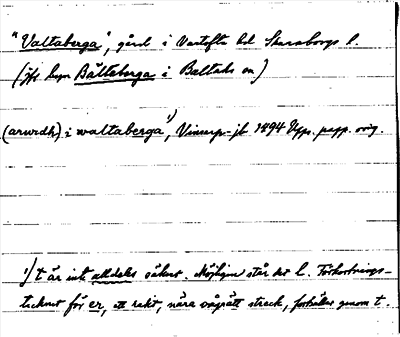 "Valtaberga", gård i Vartofta hd Skaraborgs l.
(jfr byn Bälteberga i Baltaks sn)
(arwidh) i waltaberga¹⁾, Vinarp jb 1494 Upps. papp. orig.
¹⁾ t är inte alldeles säkert. Möjligen står det l. Förkortnings-
tecknet för er, ett rakt, nära vågrätt streck, förhålles genom t.